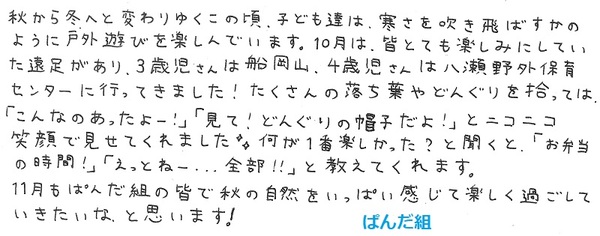 秋から冬へと変わりゆくこの頃、子ども達は、寒さを吹き飛ばすかの
ように戸外遊びを楽しんでいます。10月は、皆とても楽しみにしてい
た遠足があり、3歳児さんは船岡山、4歳児さんは八瀬野外保育
センターに行ってきました！たくさんの落ち葉やどんぐりを拾っては、
「こんなのあったよー！」「見て！どんぐりの帽子だよ！」とニコニコ
笑顔で見せてくれました 何が1番楽しかった？と聞くと、「お弁当
の時間！」「えっとねー...全部!!」と教えてくれます。
11月もぱんだ組の皆で秋の自然をいっぱい感じて楽しく過ごして
いきたいな、と思います！
ぱんだ組